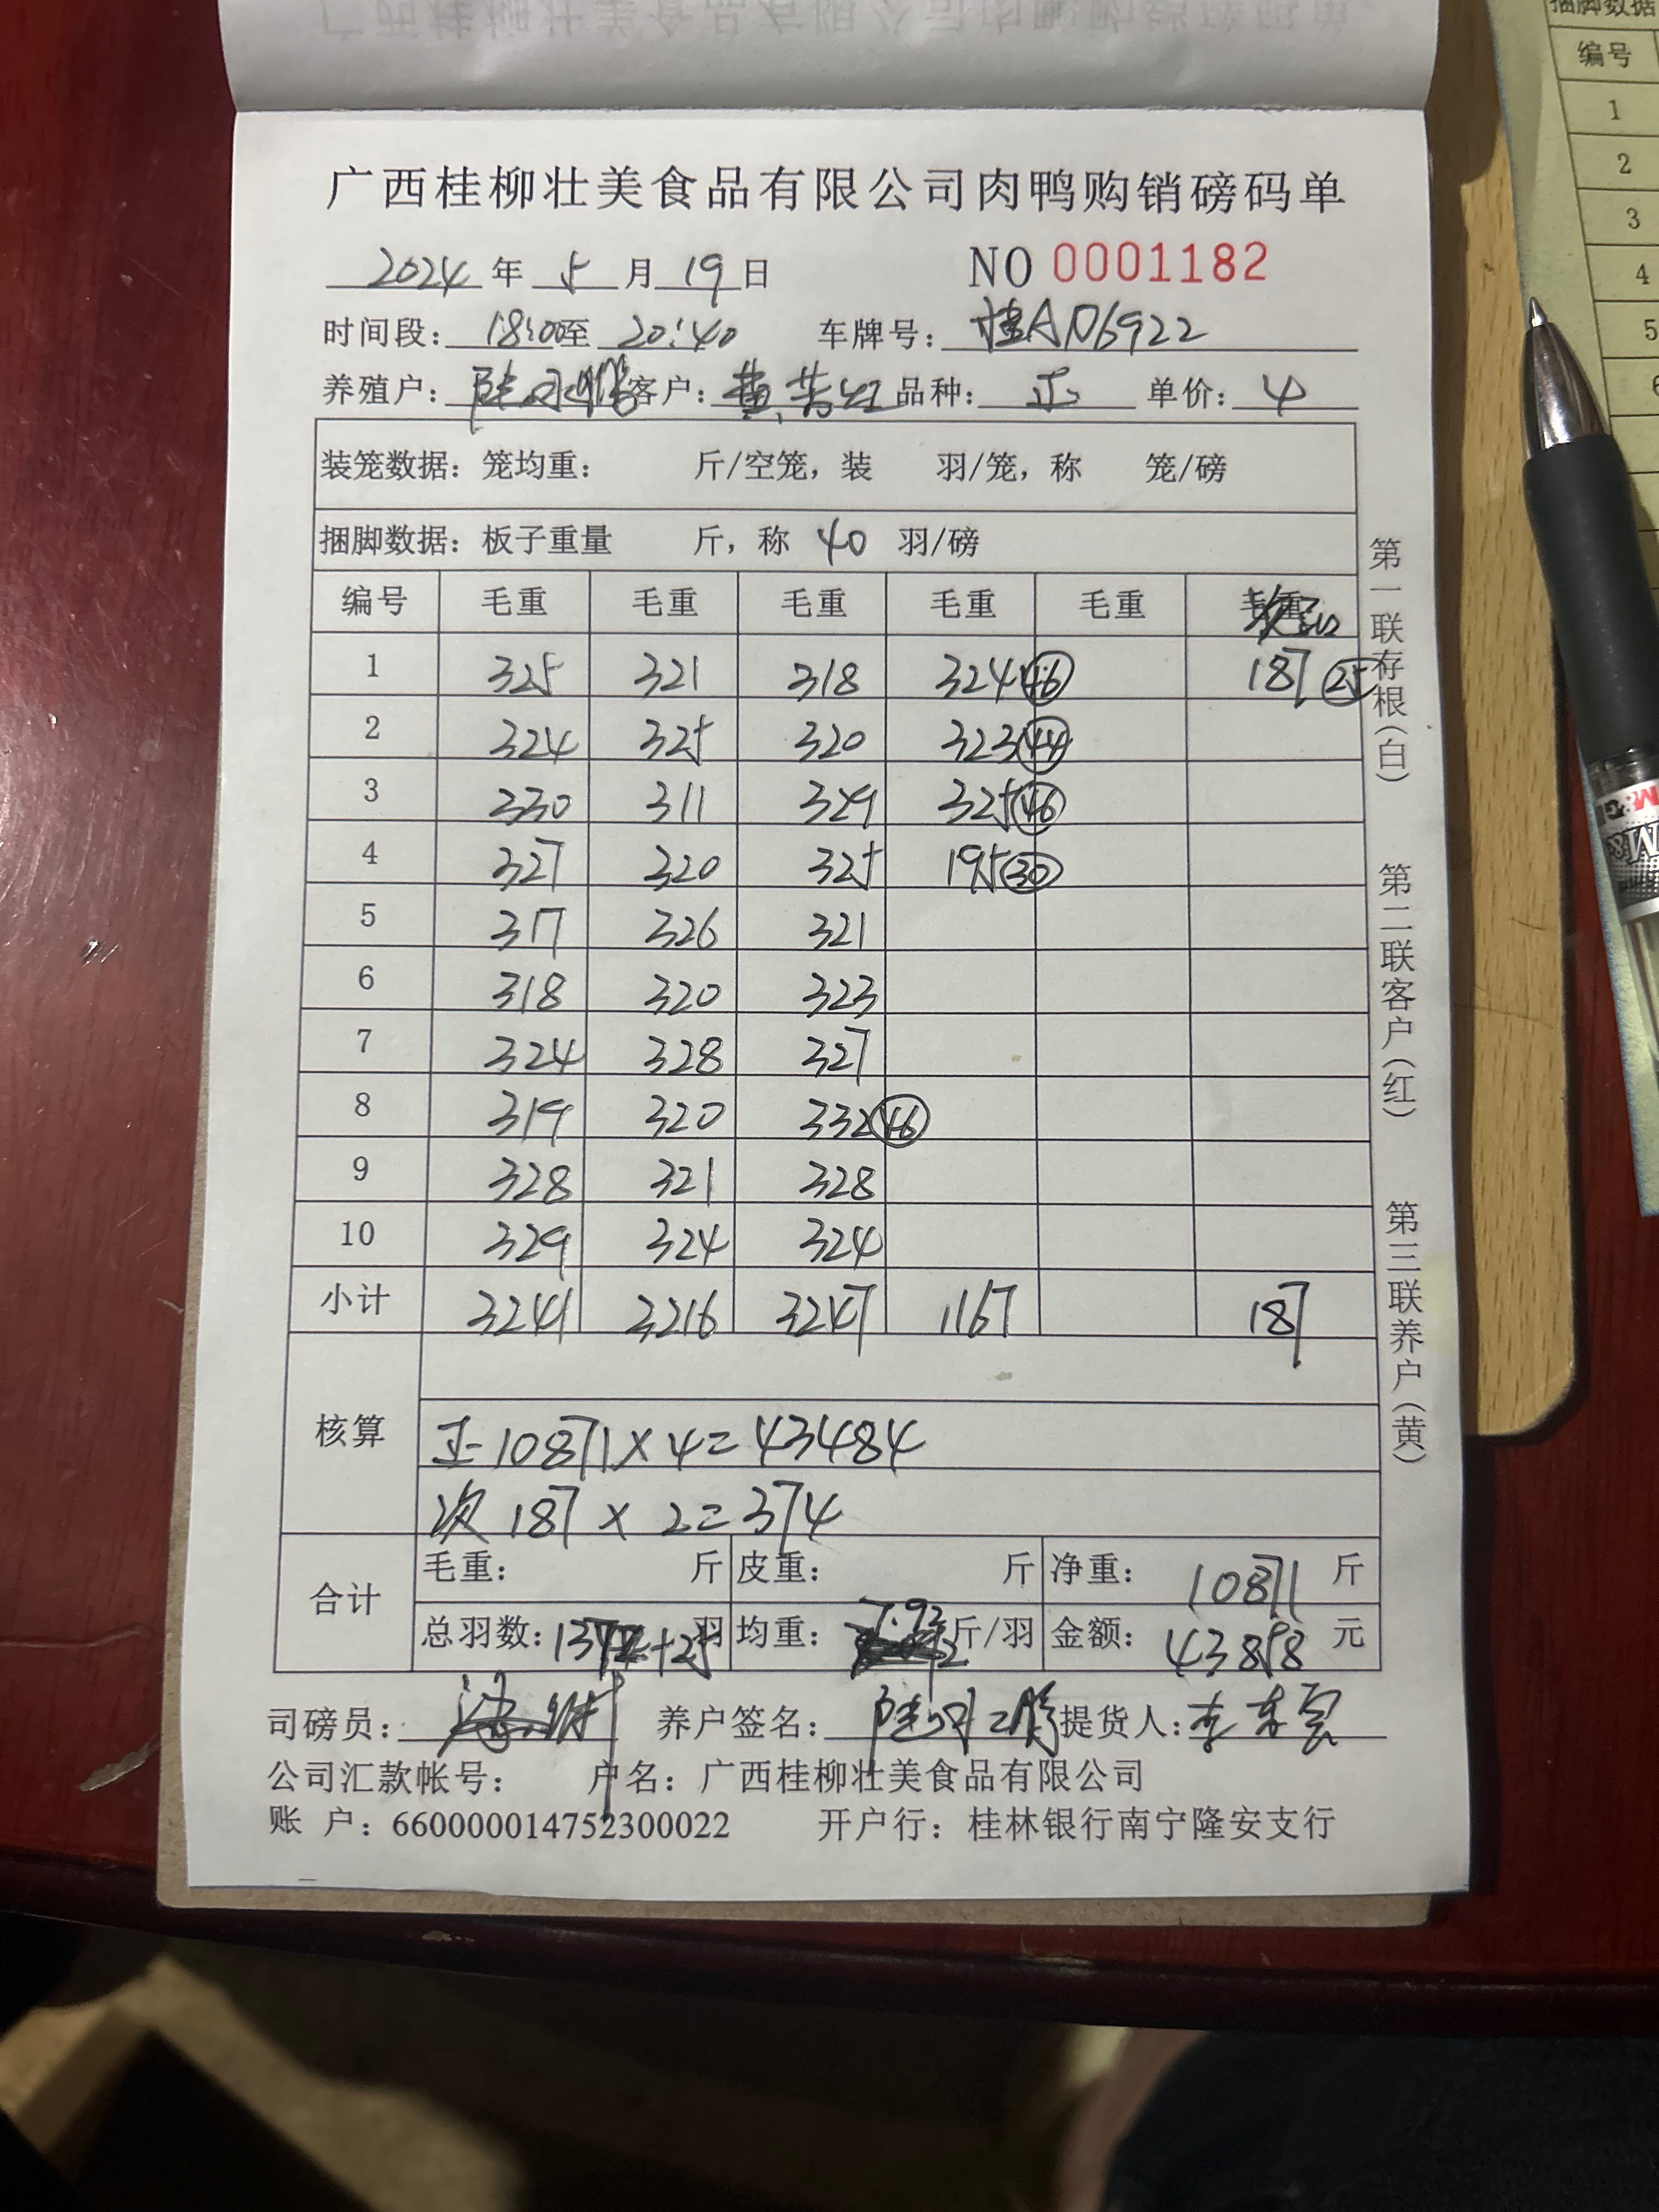 广西桂柳壮美食品有限公司肉鸭购销磅码单
2024 年 5 月 19 日 NO 0001182
时间段: 18:00 至 20:40 车牌号: 桂AD6922
养殖户: 客户: 黄 品种: 正 单价: 4
装笼数据: 笼均重: 斤/空笼, 装 羽/笼, 称 笼/磅
捆脚数据: 板子重量 斤, 称 40 羽/磅
编号 毛重 毛重 毛重 毛重 毛重 毛重
1 325 321 318 324 46 187 25
2 324 325 320 323 44
3 330 311 329 325 46
4 327 320 325 195 30
5 317 326 321
6 318 320 323
7 324 328 327
8 319 320 332 46
9 328 321 328
10 329 324 324
小计 3241 3216 3247 1167 187
核算
正 10871 × 4 = 43484
次 187 × 2 = 374
合计
毛重: 斤 皮重: 斤 净重: 10871 斤
总羽数: 1372+25 羽 均重: 7.92 斤/羽 金额: 43858 元
司磅员: 养户签名: 提货人:
公司汇款帐号: 户名: 广西桂柳壮美食品有限公司
账 户: 660000014752300022 开户行: 桂林银行南宁隆安支行
第一联存根(白)
第二联客户(红)
第三联养户(黄)
捆脚数据
编号
1
2
3
4
5
M&G